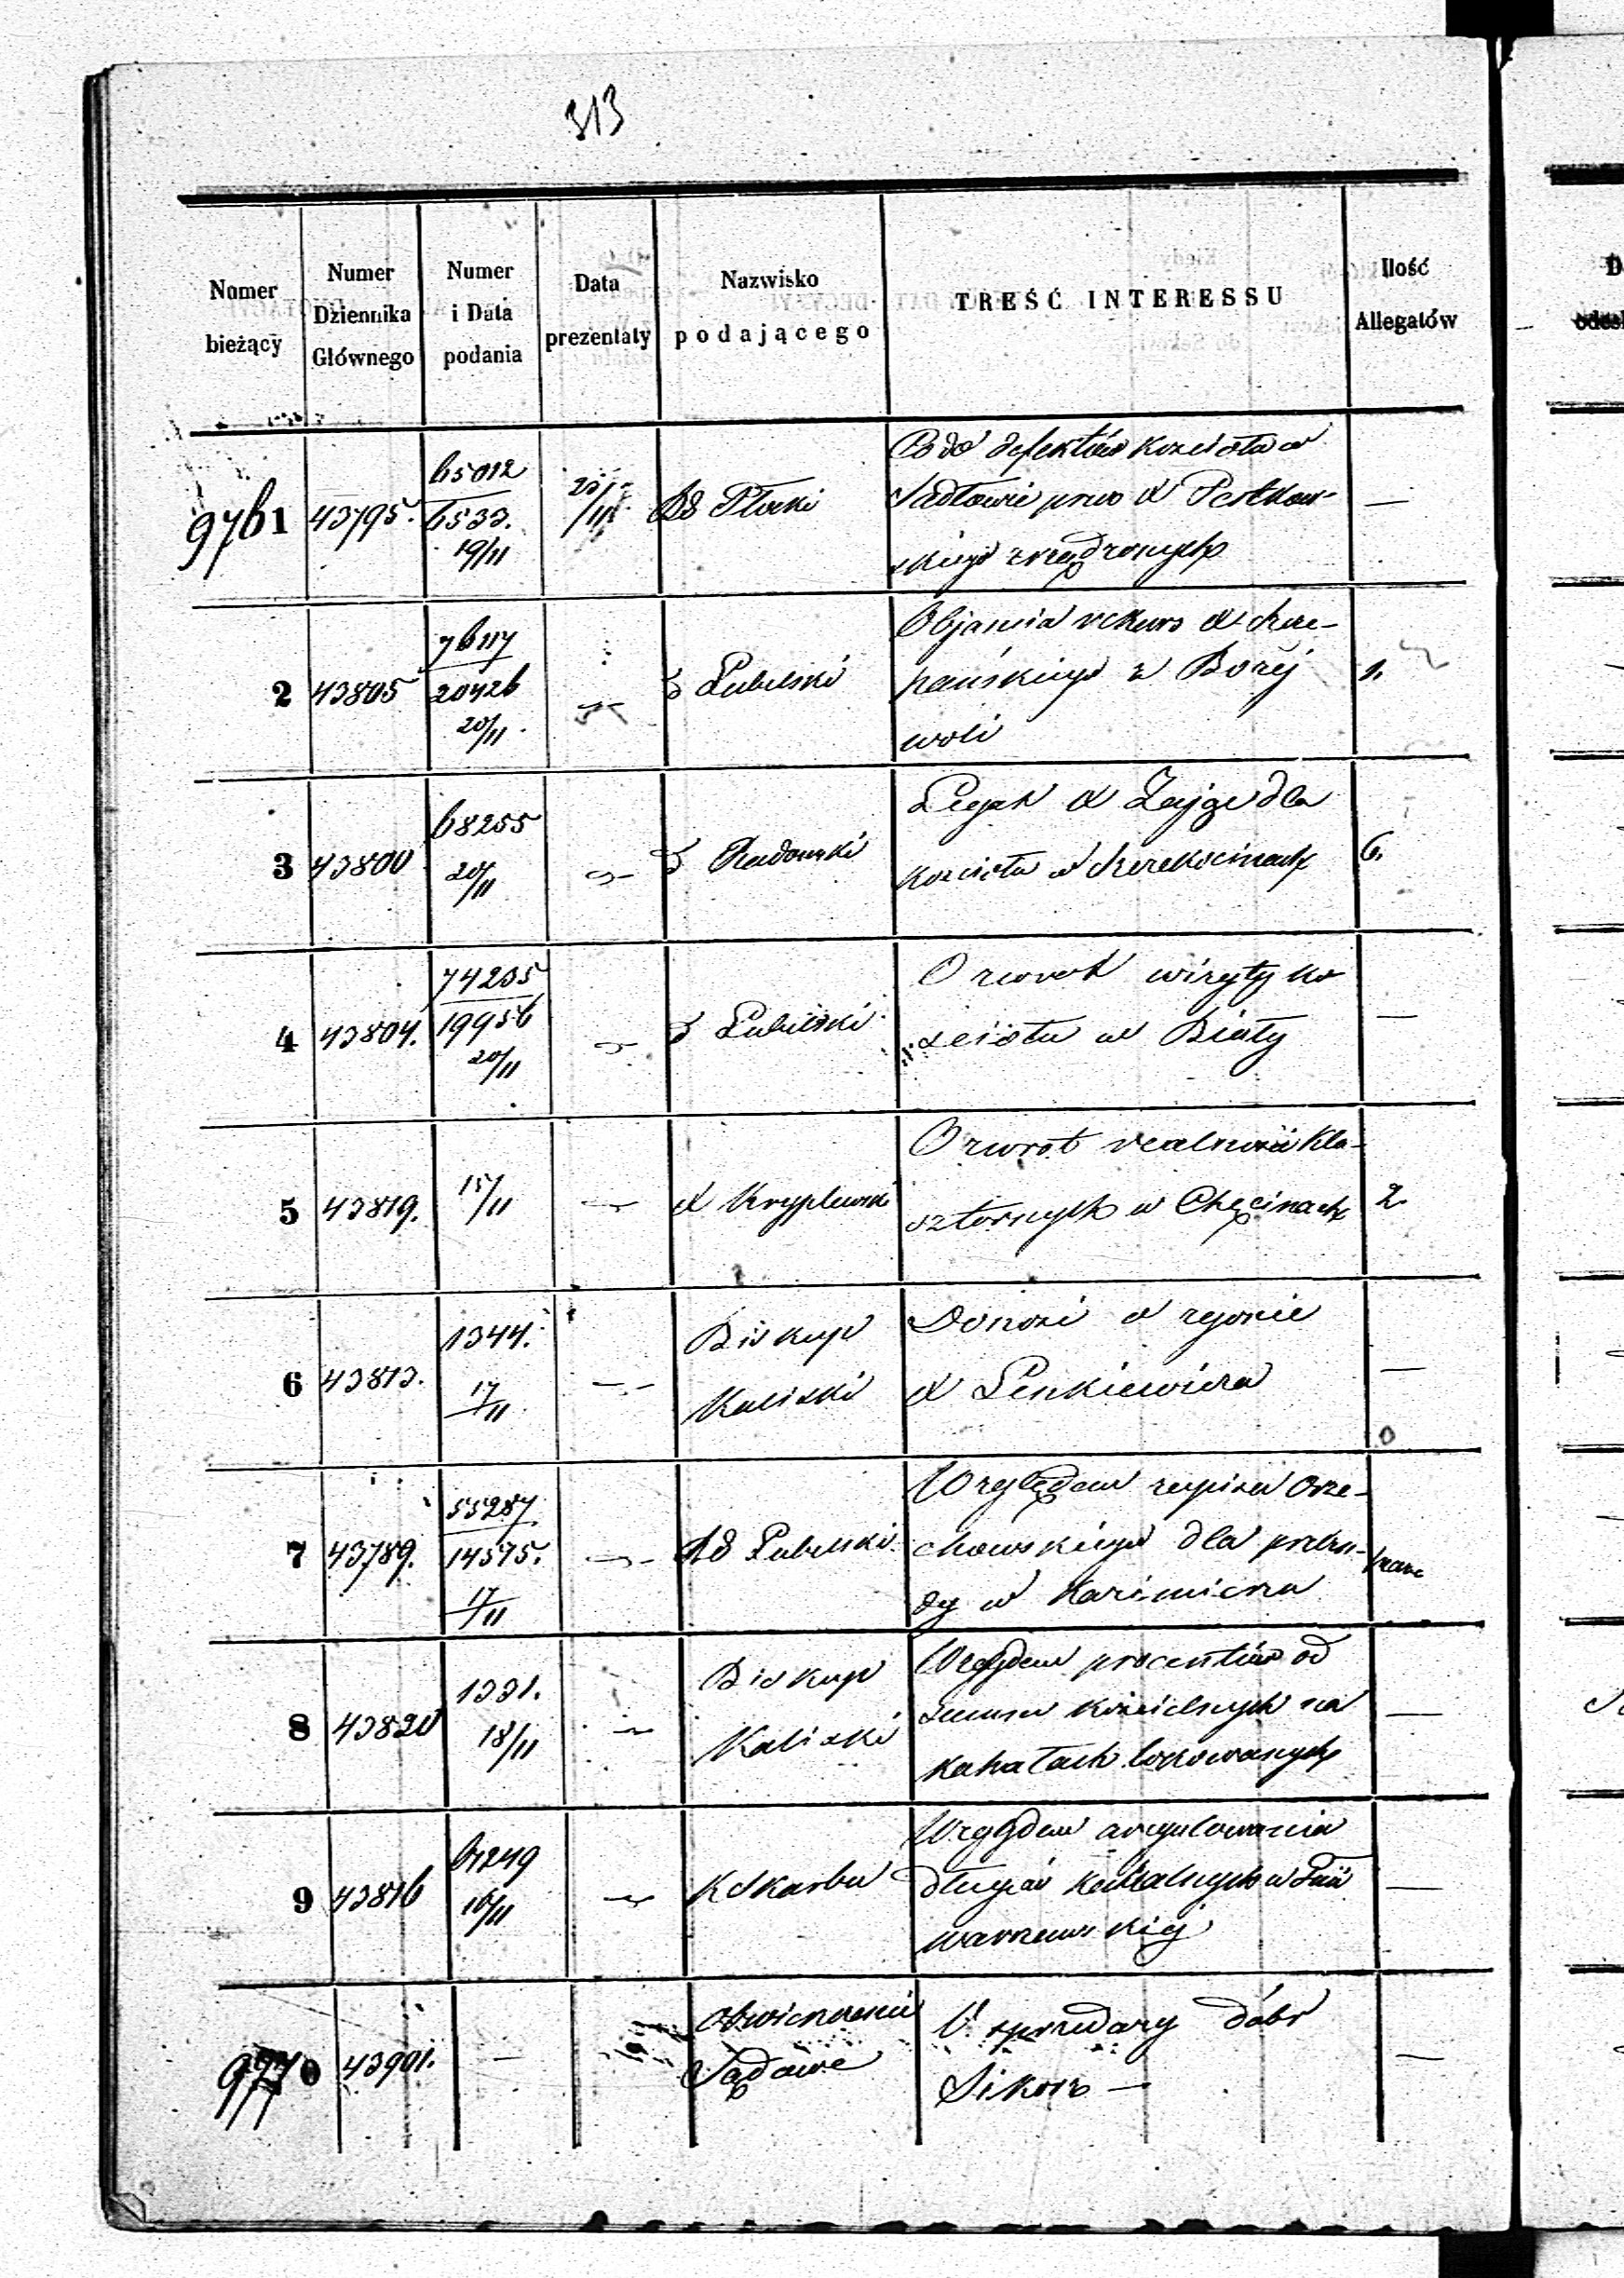 313
Numer bieżący | Numer Dziennika Głównego | Numer i Data podania | Data prezentaty | Nazwisko podającego | TREŚĆ INTERESSU | Ilość Allegatów
9761 | 43795. | 65012
6533.
19/11 | 23/11 | RG Płocki | Co do defektów kościoła w
Sadłowie przez X Petkow-
skiego zrządzonych | —
2 | 43805 | 76117
20426
20/11 | — | Lubelski | Objaśnia rekurs X Szcze-
pańskiego z Bożej
woli | 1.
3 | 43800 | 68255
20/11 | — | Radomski | Legat X Zajge dla
kościoła w Szczekocinach | 6.
4 | 43804. | 74235
19956
20/11 | — | Lubelski | O zwrot wizyty ko
ścioła w Biały | —
5 | 43819. | 15/11 | — | X Kryplewski | O zwrot realności kla-
sztornych w Chęcinach | 2
6 | 43813. | 1344.
17/11 | — | Biskup
Kaliski | Donosi o zgonie
X Lenkiewicza | —
7 | 43789. | 55287.
14575.
17/11 | — | RG Lubelski | Względem zapisu Orze-
chowskiego dla preben-
dy w Kazimierzu
8 | 43820 | 1331.
18/11 | — | Biskup
Kaliski | Względem procentów od
summ kościelnych na
kahałach lokowanych | —
9 | 43816 | 61249
16/11 | — | K Skarbu | Względem uregulowania
długów kahalnych w Gub
warszawskiej | —
9770 | 43901. | — | Obwieszczenie
Sądowe | O sprzedaży dóbr
Sikorz — | —